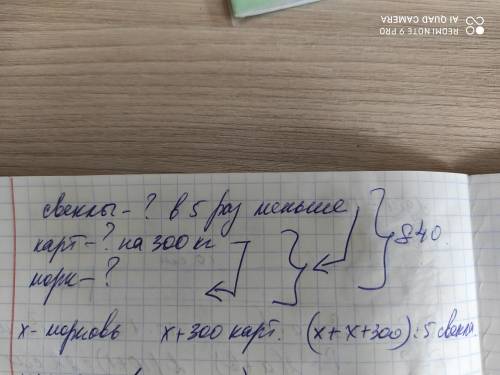 REDMI NOTE 9 PRO
AI QUAD CAMERA
свеклы - ? в 5 раз меньше
карт - ? на 300 кг
морк - ?
840.
x - морковь x + 300 карт. (x + x + 300) : 5 свекла.